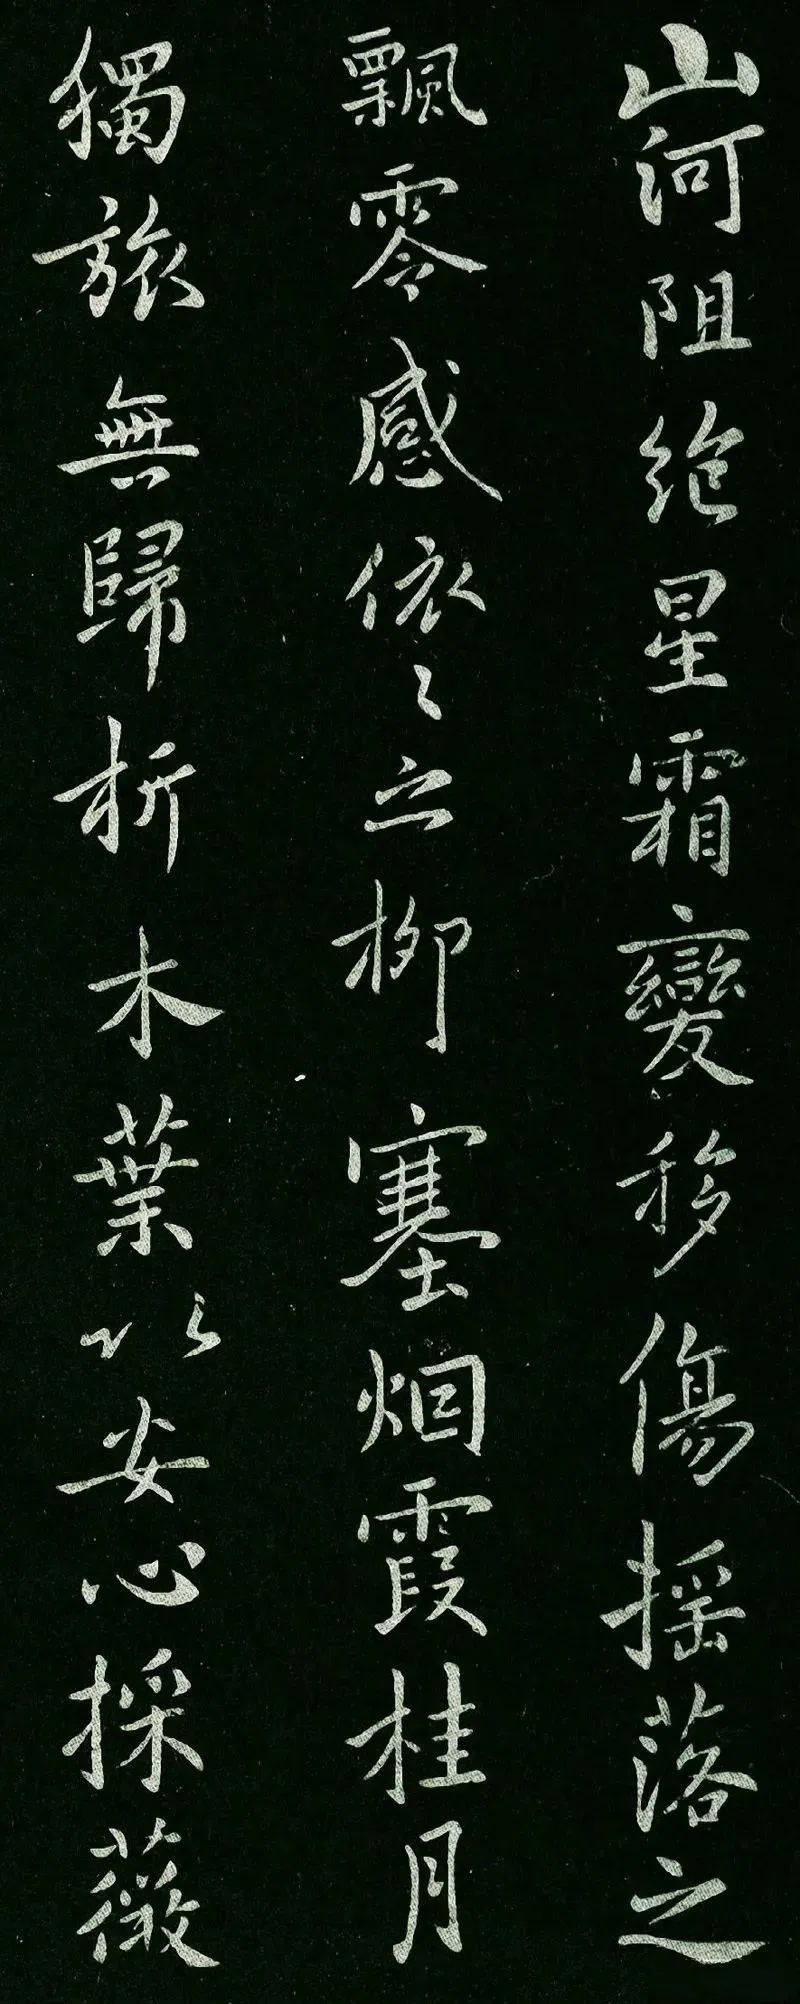 山河阻絶星霜變移傷搖落之
飄零感依〻之柳塞烟霞桂月
獨旅無歸折木葉以安心採薇